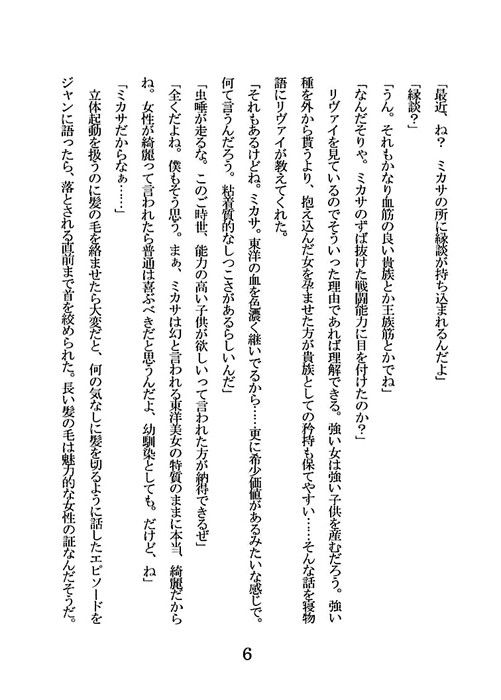 「最近、ね？　ミカサの所に縁談が持ち込まれるんだよ」
「縁談？」
「うん。それもかなり血筋の良い貴族とか王族筋とかでね」
「なんだそりゃ。ミカサのずば抜けた戦闘能力に目を付けたのか？」
　リヴァイを見ているのでそういった理由であれば理解できる。強い女は強い子供を産むだろう。強い
種を外から貰うより、抱え込んだ女を孕ませた方が貴族としての矜持も保てやすい……そんな話を寝物
語にリヴァイが教えてくれた。
「それもあるけどね。ミカサ。東洋の血を色濃く継いでるから……更に希少価値があるみたいな感じで。
何て言うんだろう。粘着質的なしつこさがあるらしいんだ」
「虫唾が走るな。このご時世、能力の高い子供が欲しいって言われた方が納得できるぜ」
「全くだよね。僕もそう思う。まぁ、ミカサは幻と言われる東洋美女の特質のままに本当、綺麗だから
ね。女性が綺麗って言われたら普通は喜ぶべきだと思うんだよ、幼馴染としても。だけど、ね」
「ミカサだからなぁ……」
　立体起動を扱うのに髪の毛を絡ませたら大変だと、何の気なしに髪を切るように話したエピソードを
ジャンに語ったら、落とされる直前まで首を絞められた。長い髪の毛は魅力的な女性の証なんだそうだ。
6